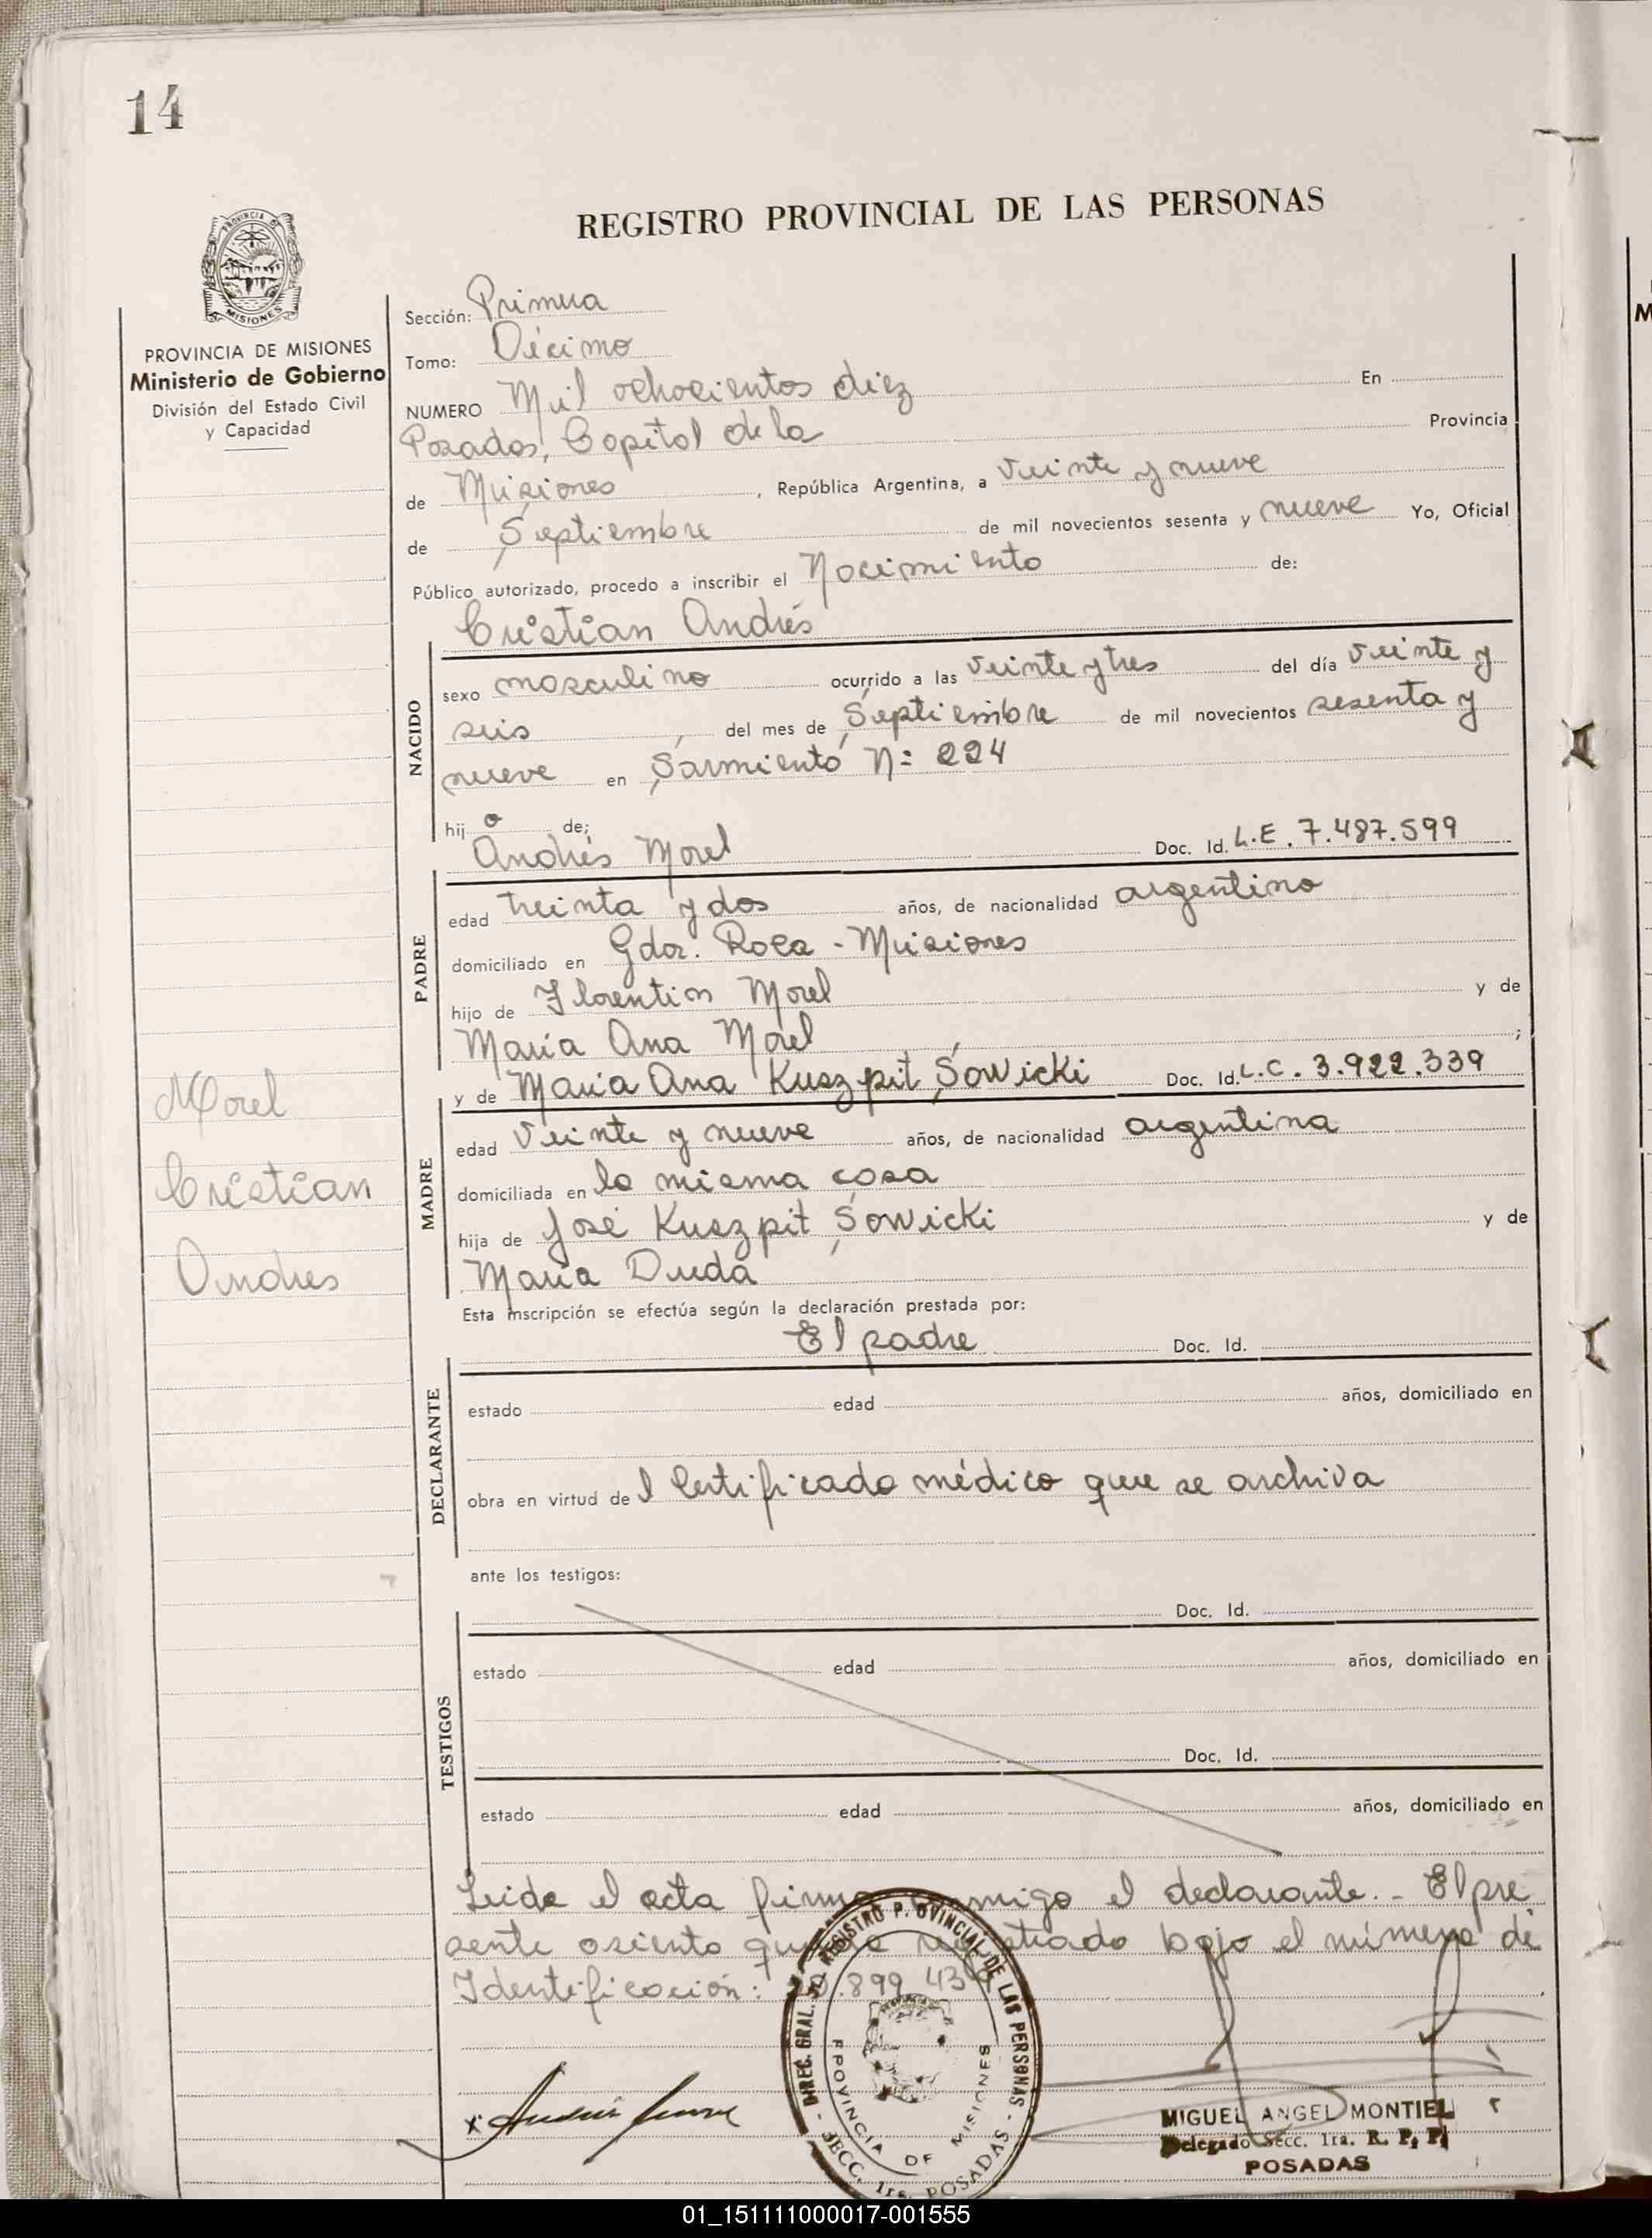 14
REGISTRO PROVINCIAL DE LAS PERSONAS
PROVINCIA DE MISIONES
Ministerio de Gobierno
División del Estado Civil
y Capacidad
Sección: Primera
Tomo: Décimo
NUMERO Mil ochocientos diez En
Posadas, Capital de la Provincia
de Misiones, República Argentina, a veinte y nueve
de Septiembre de mil novecientos sesenta y nueve Yo, Oficial
Público autorizado, procedo a inscribir el Nacimiento de:
Cristian Andrés
NACIDO
sexo masculino ocurrido a las veinte y tres del día veinte y
seis, del mes de Septiembre de mil novecientos sesenta y
nueve en Sarmiento Nº 224
hijo de;
Andrés Morel Doc. Id. L.E. 7.487.599
PADRE
edad treinta y dos años, de nacionalidad argentino
domiciliado en Gdor. Roca - Misiones
hijo de Florentin Morel y de
María Ana Morel ;
y de María Ana Kuszpit Sowicki Doc. Id. L.C. 3.922.339
MADRE
edad veinte y nueve años, de nacionalidad argentina
domiciliada en la misma casa
hija de José Kuszpit Sowicki y de
María Duda
Morel
Cristian
Andres
Esta inscripción se efectúa según la declaración prestada por:
El padre Doc. Id.
DECLARANTE
estado edad años, domiciliado en
obra en virtud del Certificado médico que se archiva
ante los testigos:
Doc. Id.
TESTIGOS
estado edad años, domiciliado en
Doc. Id.
estado edad años, domiciliado en
Leida el acta firma conmigo el declarante. - El pre
sente asiento registrado bajo el número de
Identificación: .899.43
DIREC. GRAL. REGISTRO PROVINCIAL DE LAS PERSONAS
PROVINCIA DE MISIONES
SECC. 1ra. POSADAS
MIGUEL ANGEL MONTIEL
Delegado Secc. 1ra. R. P. P.
POSADAS
01_151111000017-001555